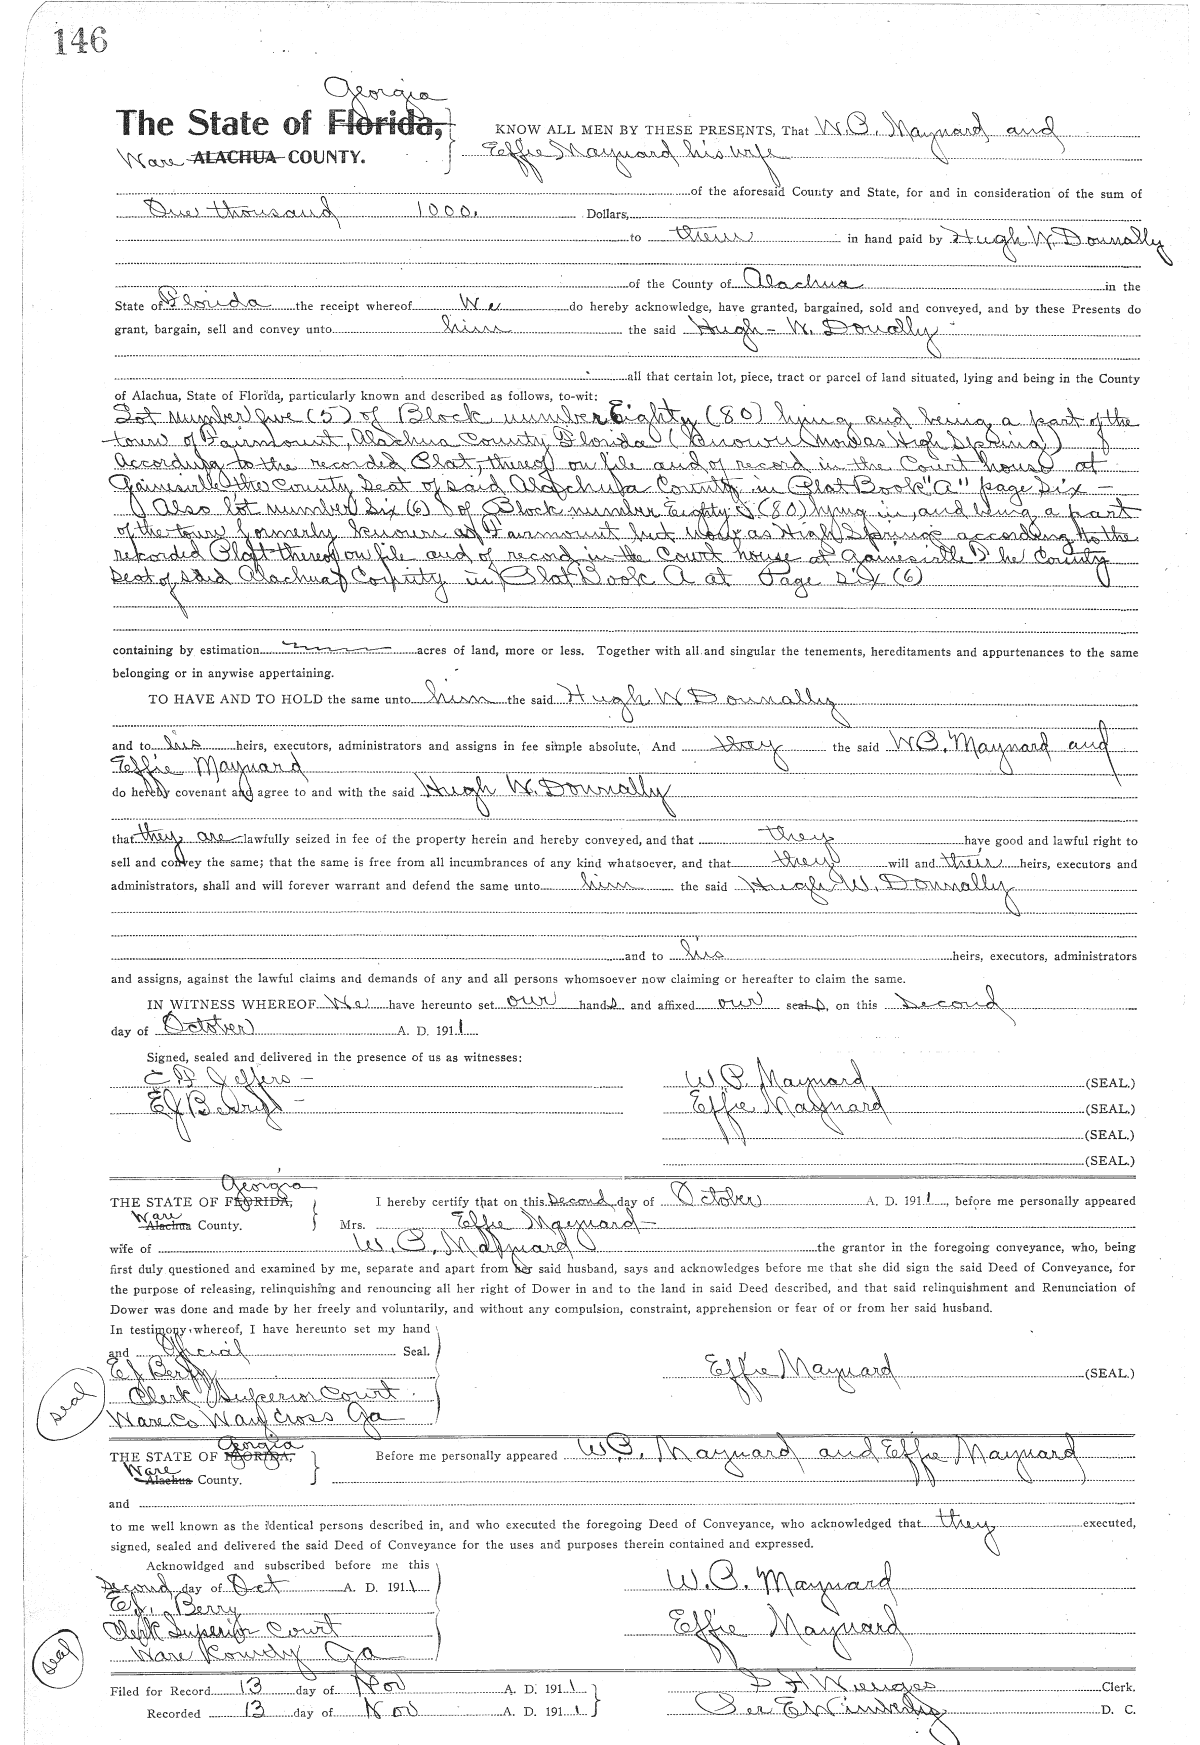 146
Georgia
The State of Florida, KNOW ALL MEN BY THESE PRESENTS, That W.P. Maynard and
Ware ALACHUA COUNTY. Effie Maynard his wife
of the aforesaid County and State, for and in consideration of the sum of
One thousand 1000. Dollars,
to them in hand paid by Hugh W. Donnally
of the County of Alachua in the
State of Florida the receipt whereof We do hereby acknowledge, have granted, bargained, sold and conveyed, and by these Presents do
grant, bargain, sell and convey unto him the said Hugh - W. Donally
all that certain lot, piece, tract or parcel of land situated, lying and being in the County
of Alachua, State of Florida, particularly known and described as follows, to-wit:
Lot number five (5) of Block number Eighty (80) lying and being a part of the
town of Fairmount, Alachua County, Florida (Known now as High Spring)
According to the recorded Plat, thereof on file and of record in the Court house at
Gainesville the County Seat of said Alachua County in Plat Book "A" page six -
Also lot number six (6) of Block number Eighty (80) lying in, and being a part
of the town formerly known as Fairmount but now as High Springs according to the
recorded Plat thereof on file and of record in the Court house at Gainesville The County
Seat of said Alachua County in Plat Book A at Page six (6)
containing by estimation acres of land, more or less. Together with all and singular the tenements, hereditaments and appurtenances to the same
belonging or in anywise appertaining.
TO HAVE AND TO HOLD the same unto him the said Hugh W Donnally
and to his heirs, executors, administrators and assigns in fee simple absolute, And they the said W.P. Maynard and
Effie Maynard
do hereby covenant and agree to and with the said Hugh W. Donnally
that they are lawfully seized in fee of the property herein and hereby conveyed, and that they have good and lawful right to
sell and convey the same; that the same is free from all incumbrances of any kind whatsoever, and that they will and their heirs, executors and
administrators, shall and will forever warrant and defend the same unto him the said Hugh W. Donnally
and to his heirs, executors, administrators
and assigns, against the lawful claims and demands of any and all persons whomsoever now claiming or hereafter to claim the same.
IN WITNESS WHEREOF We have hereunto set our hands and affixed our seals, on this second
day of October A. D. 1911
Signed, sealed and delivered in the presence of us as witnesses:
Jeffers - W.P. Maynard (SEAL.)
EJ Berry - Effie Maynard (SEAL.)
(SEAL.)
(SEAL.)
Georgia
THE STATE OF FLORIDA, I hereby certify that on this second day of October A. D. 1911, before me personally appeared
Ware Alachua County. Mrs. Effie Maynard -
wife of W. P. Maynard the grantor in the foregoing conveyance, who, being
first duly questioned and examined by me, separate and apart from her said husband, says and acknowledges before me that she did sign the said Deed of Conveyance, for
the purpose of releasing, relinquishing and renouncing all her right of Dower in and to the land in said Deed described, and that said relinquishment and Renunciation of
Dower was done and made by her freely and voluntarily, and without any compulsion, constraint, apprehension or fear of or from her said husband.
In testimony whereof, I have hereunto set my hand
and Official Seal.
EJ Berry Effie Maynard (SEAL.)
seal Clerk Superior Court
Ware Co Waycross Ga
Georgia
THE STATE OF FLORIDA, Before me personally appeared W.P. Maynard and Effie Maynard
Ware Alachua County.
and
to me well known as the identical persons described in, and who executed the foregoing Deed of Conveyance, who acknowledged that they executed,
signed, sealed and delivered the said Deed of Conveyance for the uses and purposes therein contained and expressed.
Acknowldged and subscribed before me this
second day of Oct A. D. 1911 W.P. Maynard
EJ. Berry
Clerk Superior Court Effie Maynard
seal Ware County Ga
Filed for Record 13 day of Nov A. D. 1911 Clerk.
Recorded 13 day of Nov A. D. 1911 D. C.